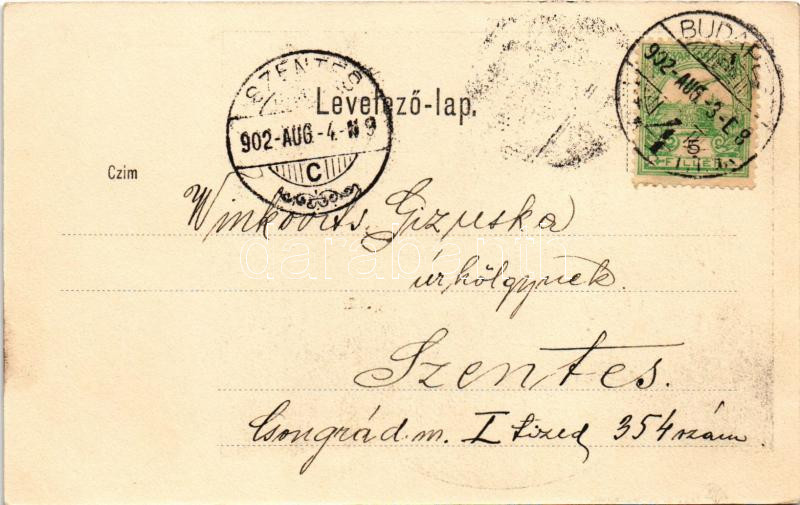 BUDAPEST
902-AUG.-3-E.8
5
FILLÉR
SZENTES
Levelező-lap.
902-AUG.-4.-N 9
C
Czim
Winkovits Gizuska
úrhölgynek.
Szentes.
Csongrád m. I tized 354 szám
darabanth